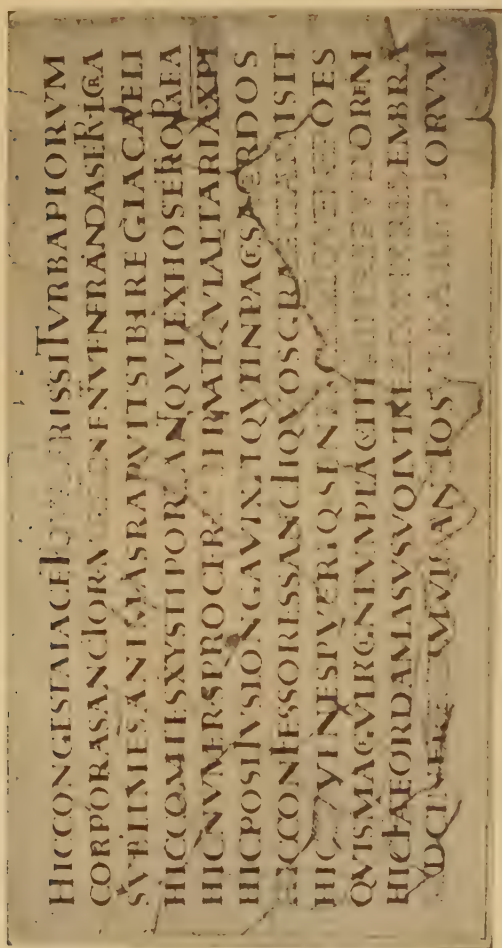 HIC CONGESTA IACET QVAERIS SI TVRBA PIORVM
CORPORA SANCTORVM RETINENT VENERANDA SEPVLCRA
SVBLIMES ANIMAS RAPVIT SIBI REGIA CAELI
HIC COMITES XYSTI PORTANT QVI EX HOSTE TROPAEA
HIC NVMERVS PROCERVM SERVAT QVI ALTARIA XPI
HIC POSITVS LONGA VIXIT QVI IN PACE SACERDOS
HIC CONFESSORES SANCTI QVOS GRAECIA MISIT
HIC IVVENES PVERIQ SENES
QVIS MAGE VIRGINEVM PLACVIT RETINERE PVDOREM
HIC FATEOR DAMASVS VOLVI MEA CONDERE MEMBRA
CINERES TIMVI SANCTOS PIORVM